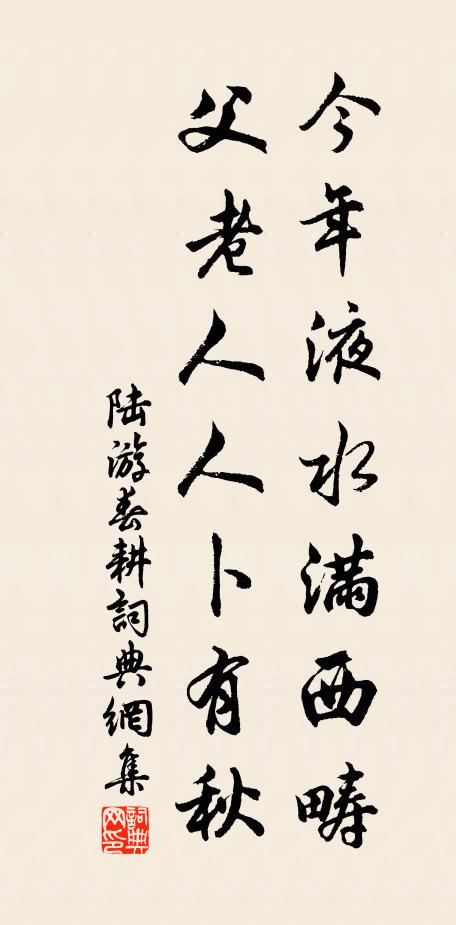 今年液水满西畴
父老人人卜有秋
陆游春耕詞典網集
詞典网印